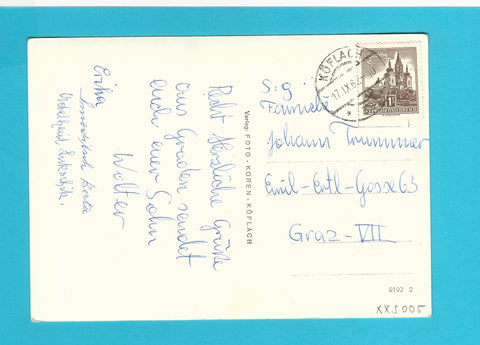 Recht herzliche Grüße
aus Graden sendet
euch euer Sohn
Walter
Erika
Verlag: FOTO - KOREN - KÖFLACH
KÖFLACH
17.IX.6
S 1
REPUBLIK ÖSTERREICH
Sig.
Familie
Johann Trummer
Emil-Ertl-Gasse 63
Graz-VII
9192 2
XXS005